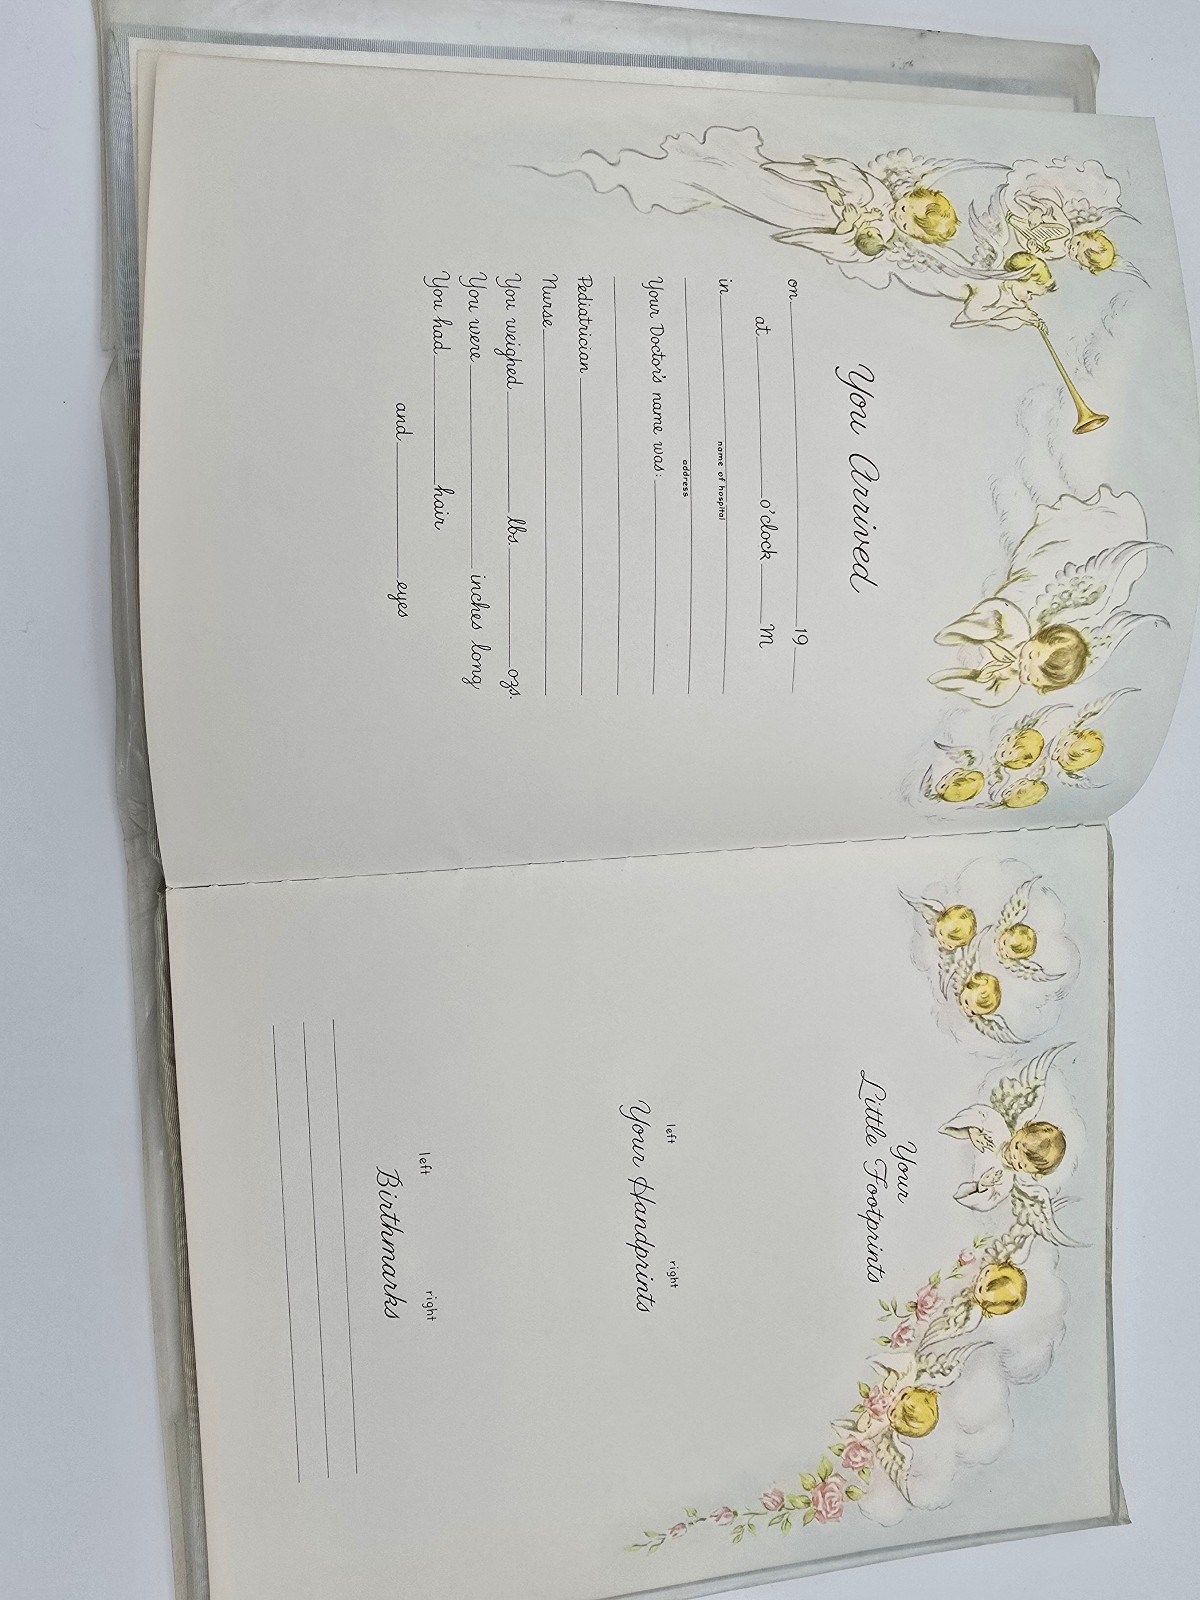 You Arrived
on 19
at o'clock M
in
name of hospital
address
Your Doctor's name was:
Pediatrician
Nurse
You weighed lbs. ozs.
You were inches long
You had hair
and eyes
Your
Little Footprints
left right
Your Handprints
left right
Birthmarks